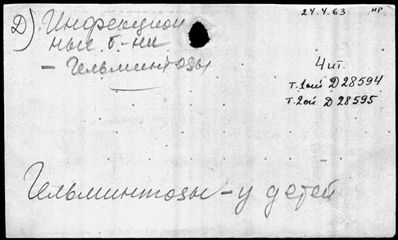 24.4.63 нр
Д). Инфекцион
ные б.-ни
- Гельминтозы
4 шт.
т.1ый Д 28594
т.2ой Д 28595
Гельминтозы - у детей